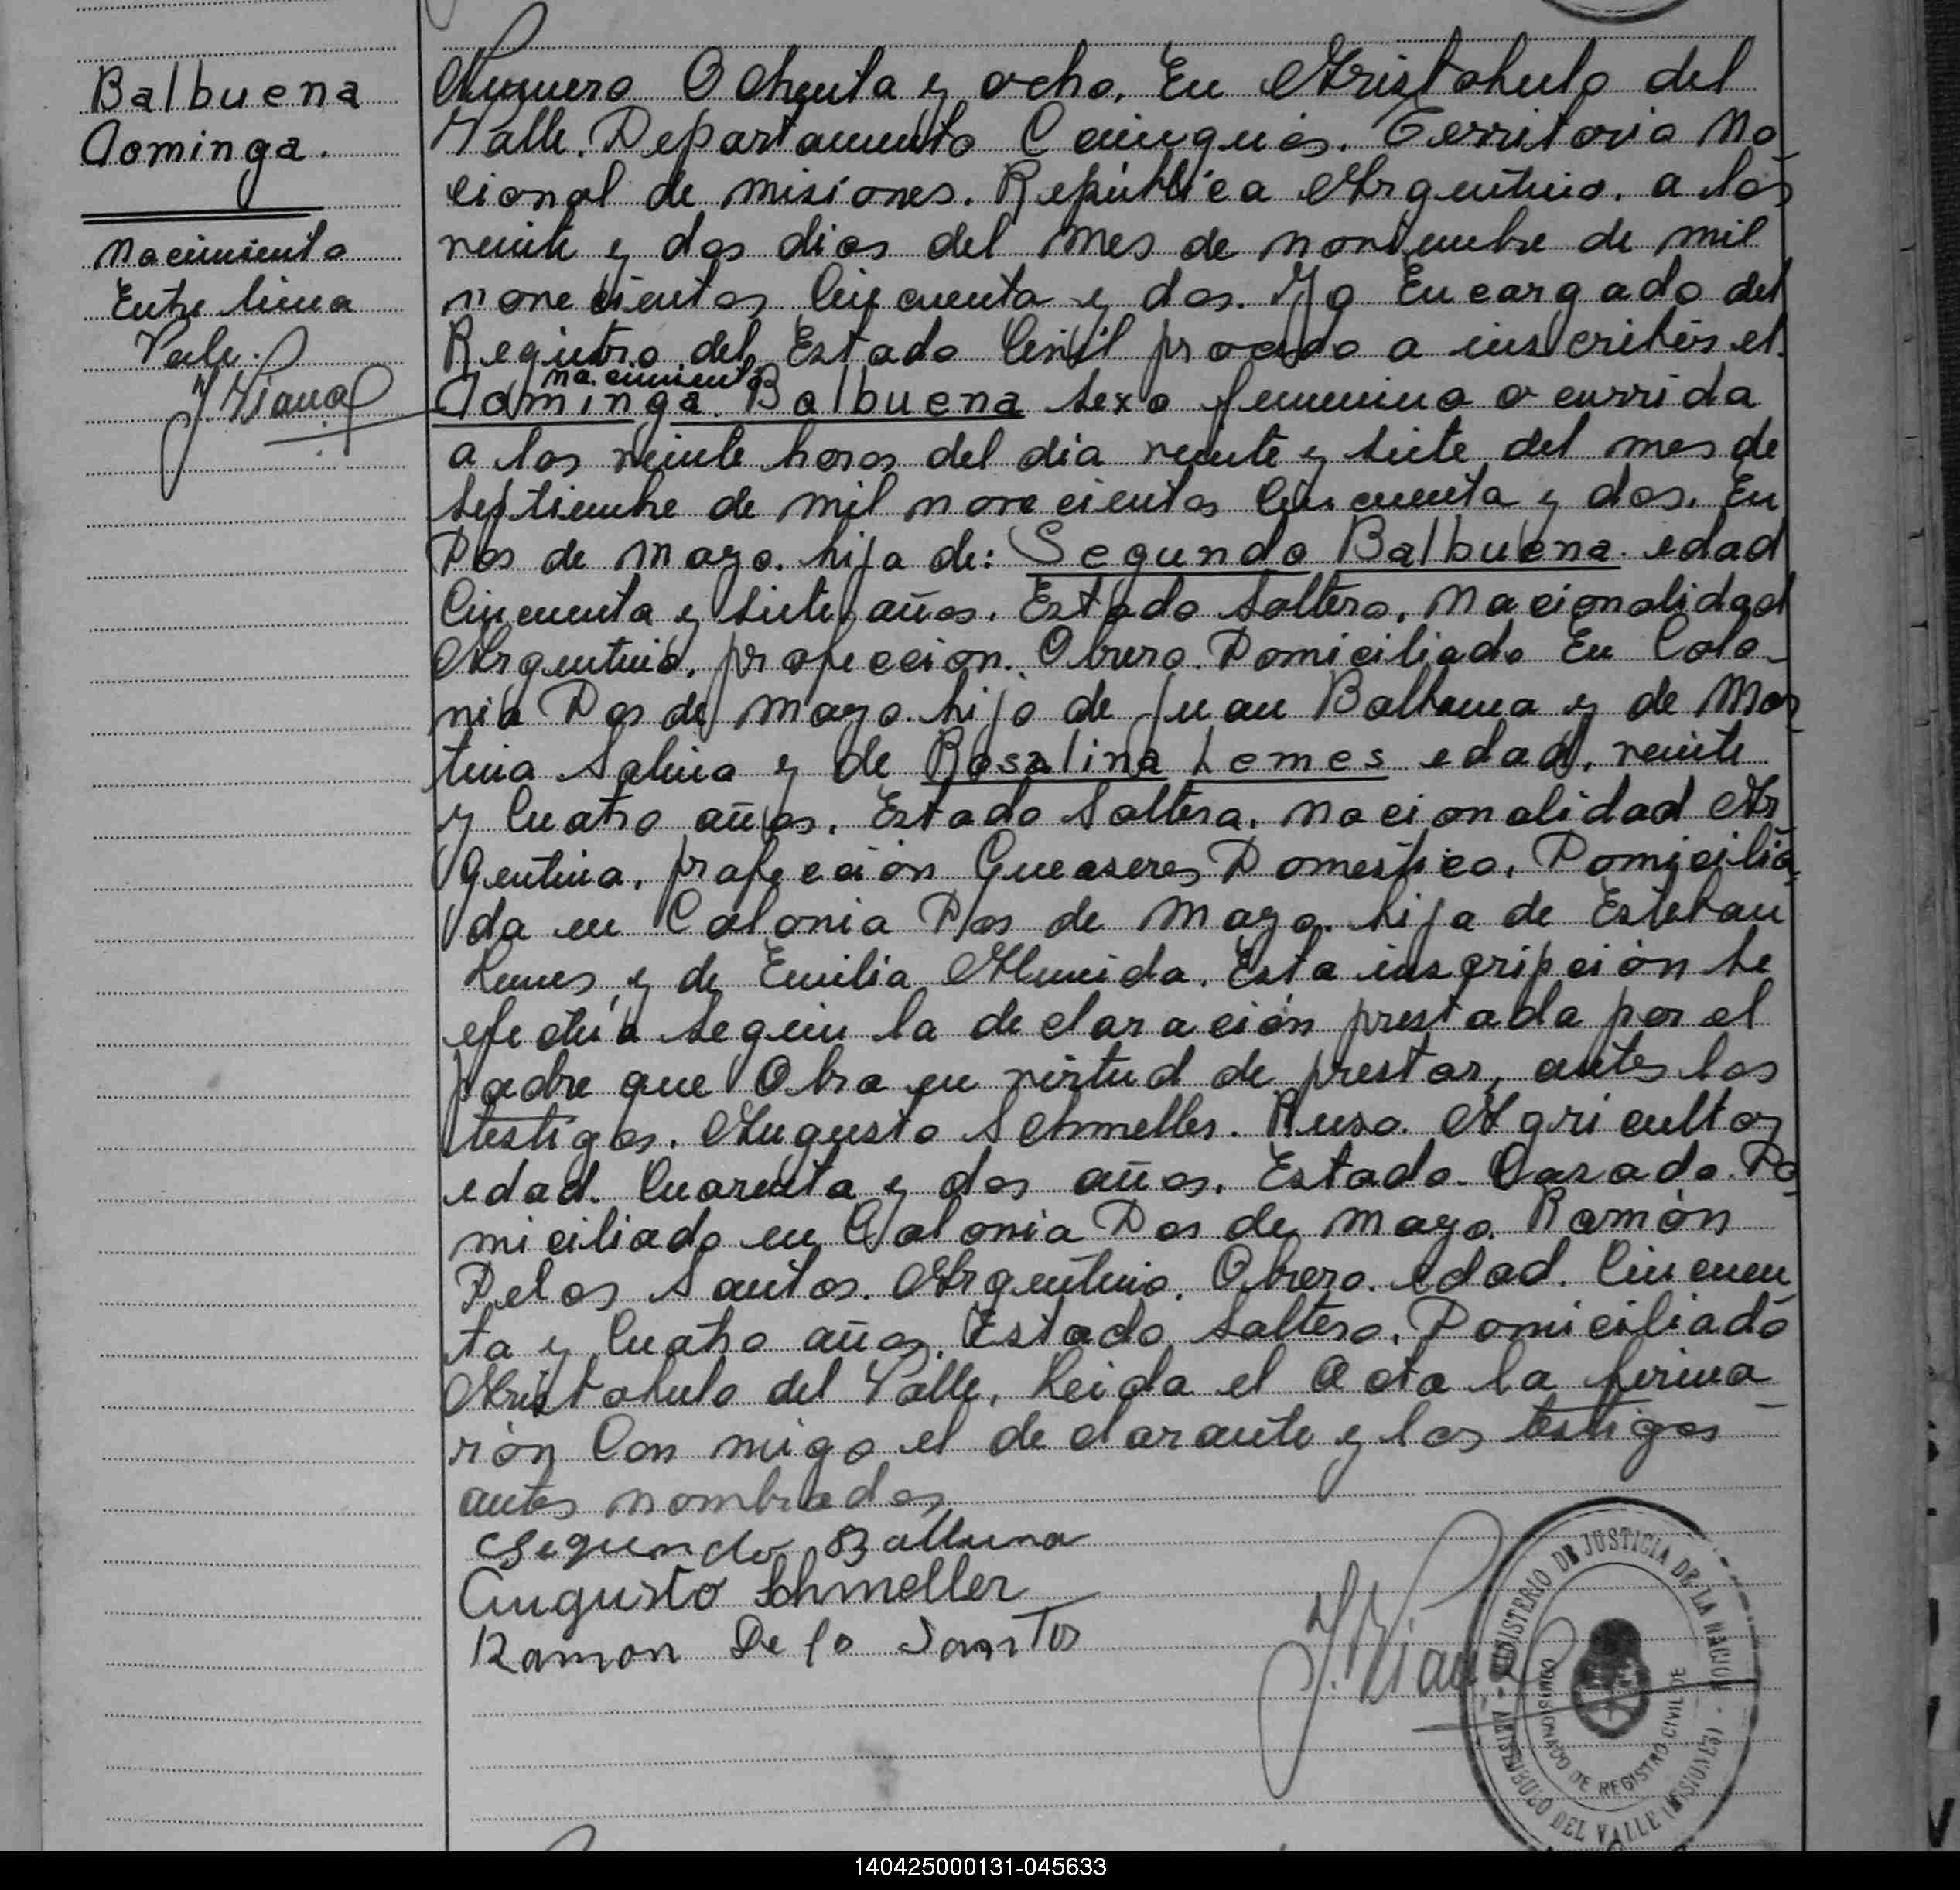 Balbuena
Dominga.
Nacimiento
Entre linea
Vale.
Numero Ochenta y ocho. En Aristobulo del
Valle. Departamento Cainguás. Territorio Na
cional de misiones. República Argentina. a los
veinte y dos dias del mes de noviembre de mil
novecientos Cincuenta y dos. Yo Encargado del
Registro del Estado Civil procedo a inscribir el.
nacimiento
Dominga. Balbuena sexo femenino ocurrida
a las veinte horas del dia veinte y siete del mes de
septiembre de mil novecientos Cincuenta y dos. En
Dos de Mayo. hija de: Segundo Balbuena. edad
Cincuenta y siete años. Estado Soltero. Nacionalidad
Argentino. profeccion. Obrero. Domiciliado En Colo-
nia Dos de Mayo. hijo de Juan Balbuena y de Mar
tina Salina y de Rosalina Lemes edad. veinte
y Cuatro años. Estado Soltera. nacionalidad Ar
gentina. profección Queaseres Domestico. Domicilia
da en Colonia Dos de Mayo. hija de Esteban
Lemes y de Emilia Almeida. Esta inscripción se
efectúa según la declaración prestada por el
padre que Obra en virtud de prestar, antes los
testigos. Augusto Schmelles. Ruso. Agricultor
edad. Cuarenta y dos años. Estado. Casado. Do
miciliado en Colonia Dos de Mayo. Ramón
Delos Santos. Argentino. Obrero. edad. Cincuen
ta y Cuatro años. Estado Soltero. Domiciliado
Aristobulo del Valle. Leida el Acta la firma
rón Con migo el declarante y los testigos
antes nombrados
Segundo Balbuena
Augusto Schmeller
Ramon De lo Santos
MINISTERIO DE JUSTICIA DE LA NACION
COMISIONADO DE REGISTRO CIVIL DE
ARISTOBULO DEL VALLE (MISIONES)
140425000131-045633